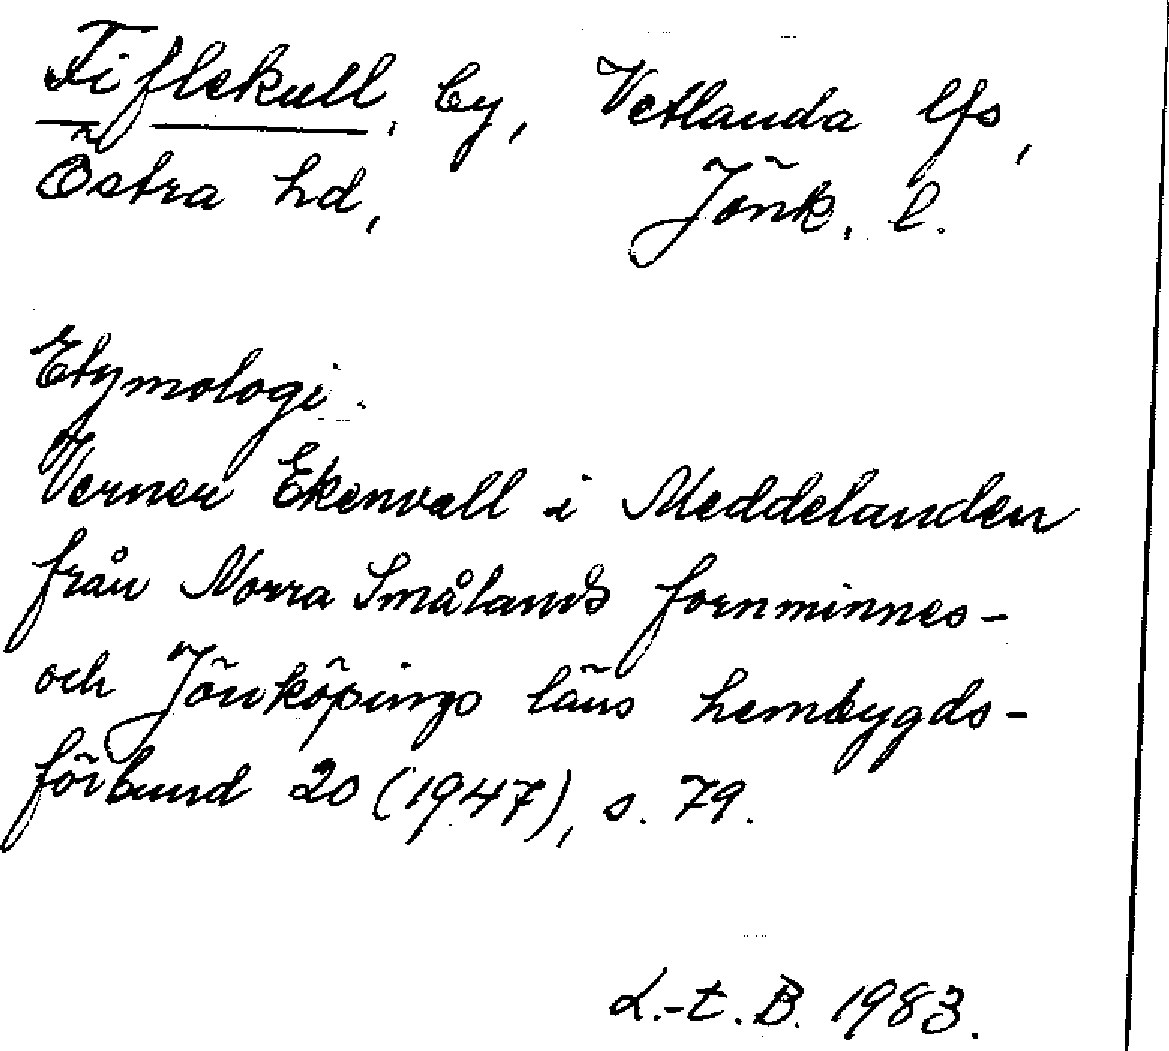 Fiflekull, by, Vetlanda lfs,
Östra hd, Jönk. l.
Etymologi.
Verner Ekenvall i Meddelanden
från Norra Smålands fornminnes-
och Jönköpings läns hembygds-
förbund 20 (1947), s. 79.
L.-t. B. 1983.